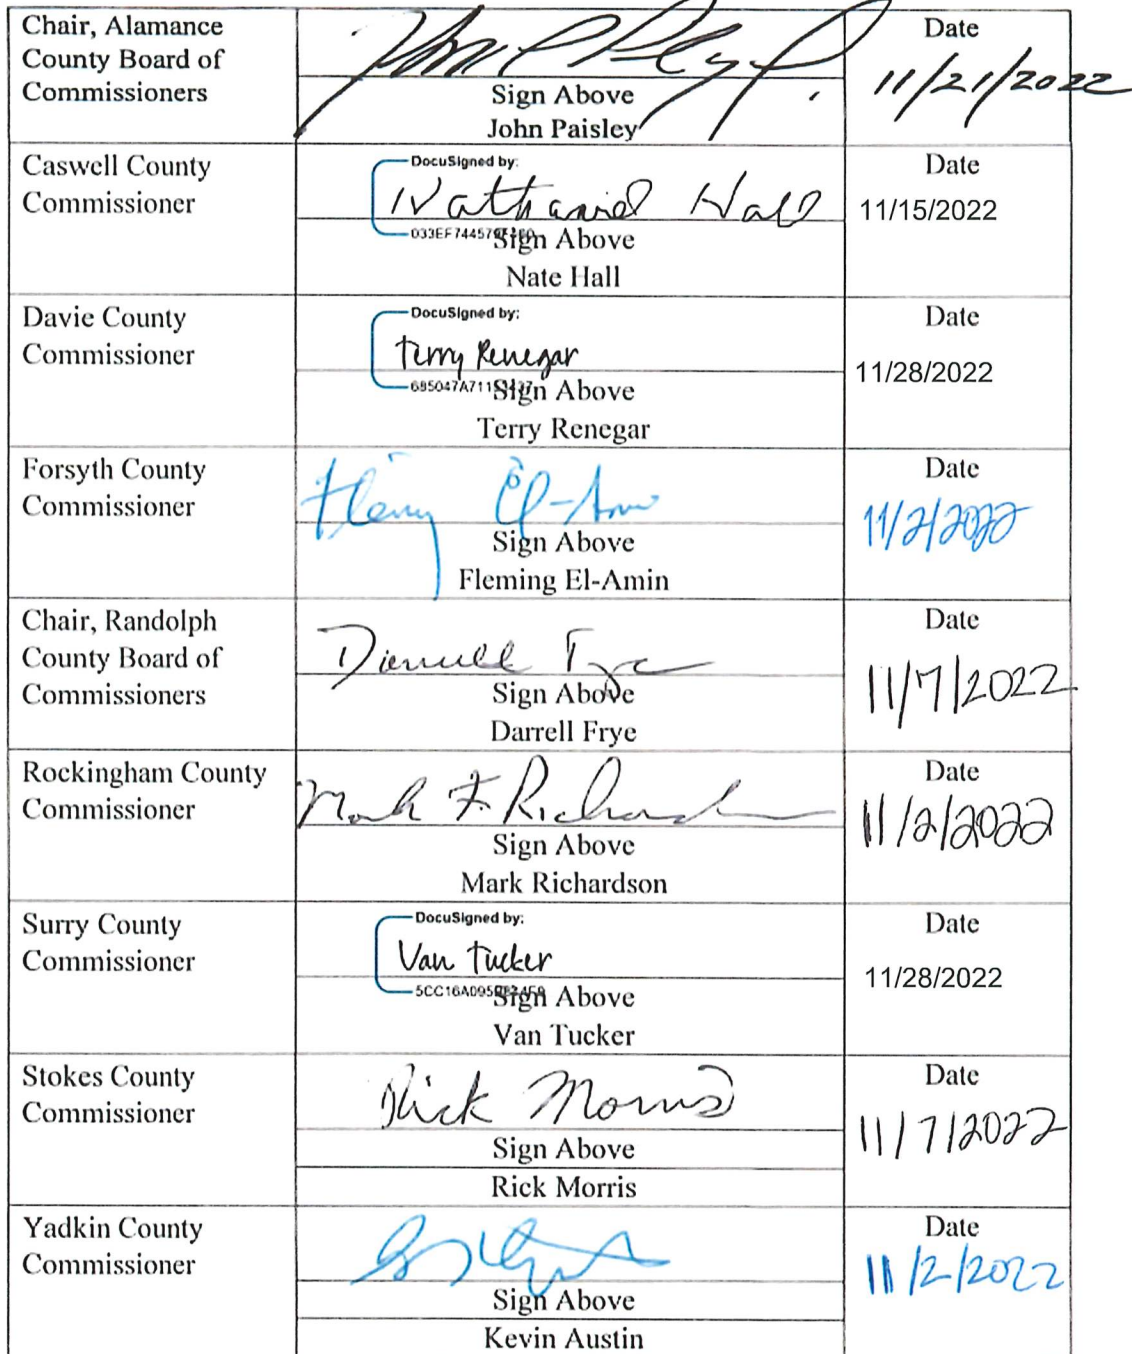 Chair, Alamance
County Board of
Commissioners
Sign Above
John Paisley
Date
11/21/2022
Caswell County
Commissioner
DocuSigned by:
Nathaniel Hall
Sign Above
Nate Hall
Date
11/15/2022
Davie County
Commissioner
DocuSigned by:
Terry Renegar
Sign Above
Terry Renegar
Date
11/28/2022
Forsyth County
Commissioner
El-Amin
Sign Above
Fleming El-Amin
Date
11/2/2022
Chair, Randolph
County Board of
Commissioners
Darrell Frye
Sign Above
Darrell Frye
Date
11/7/2022
Rockingham County
Commissioner
Mark F. Richardson
Sign Above
Mark Richardson
Date
11/2/2022
Surry County
Commissioner
DocuSigned by:
Van Tucker
Sign Above
Van Tucker
Date
11/28/2022
Stokes County
Commissioner
Rick Morris
Sign Above
Rick Morris
Date
11/7/2022
Yadkin County
Commissioner
Sign Above
Kevin Austin
Date
11/2/2022